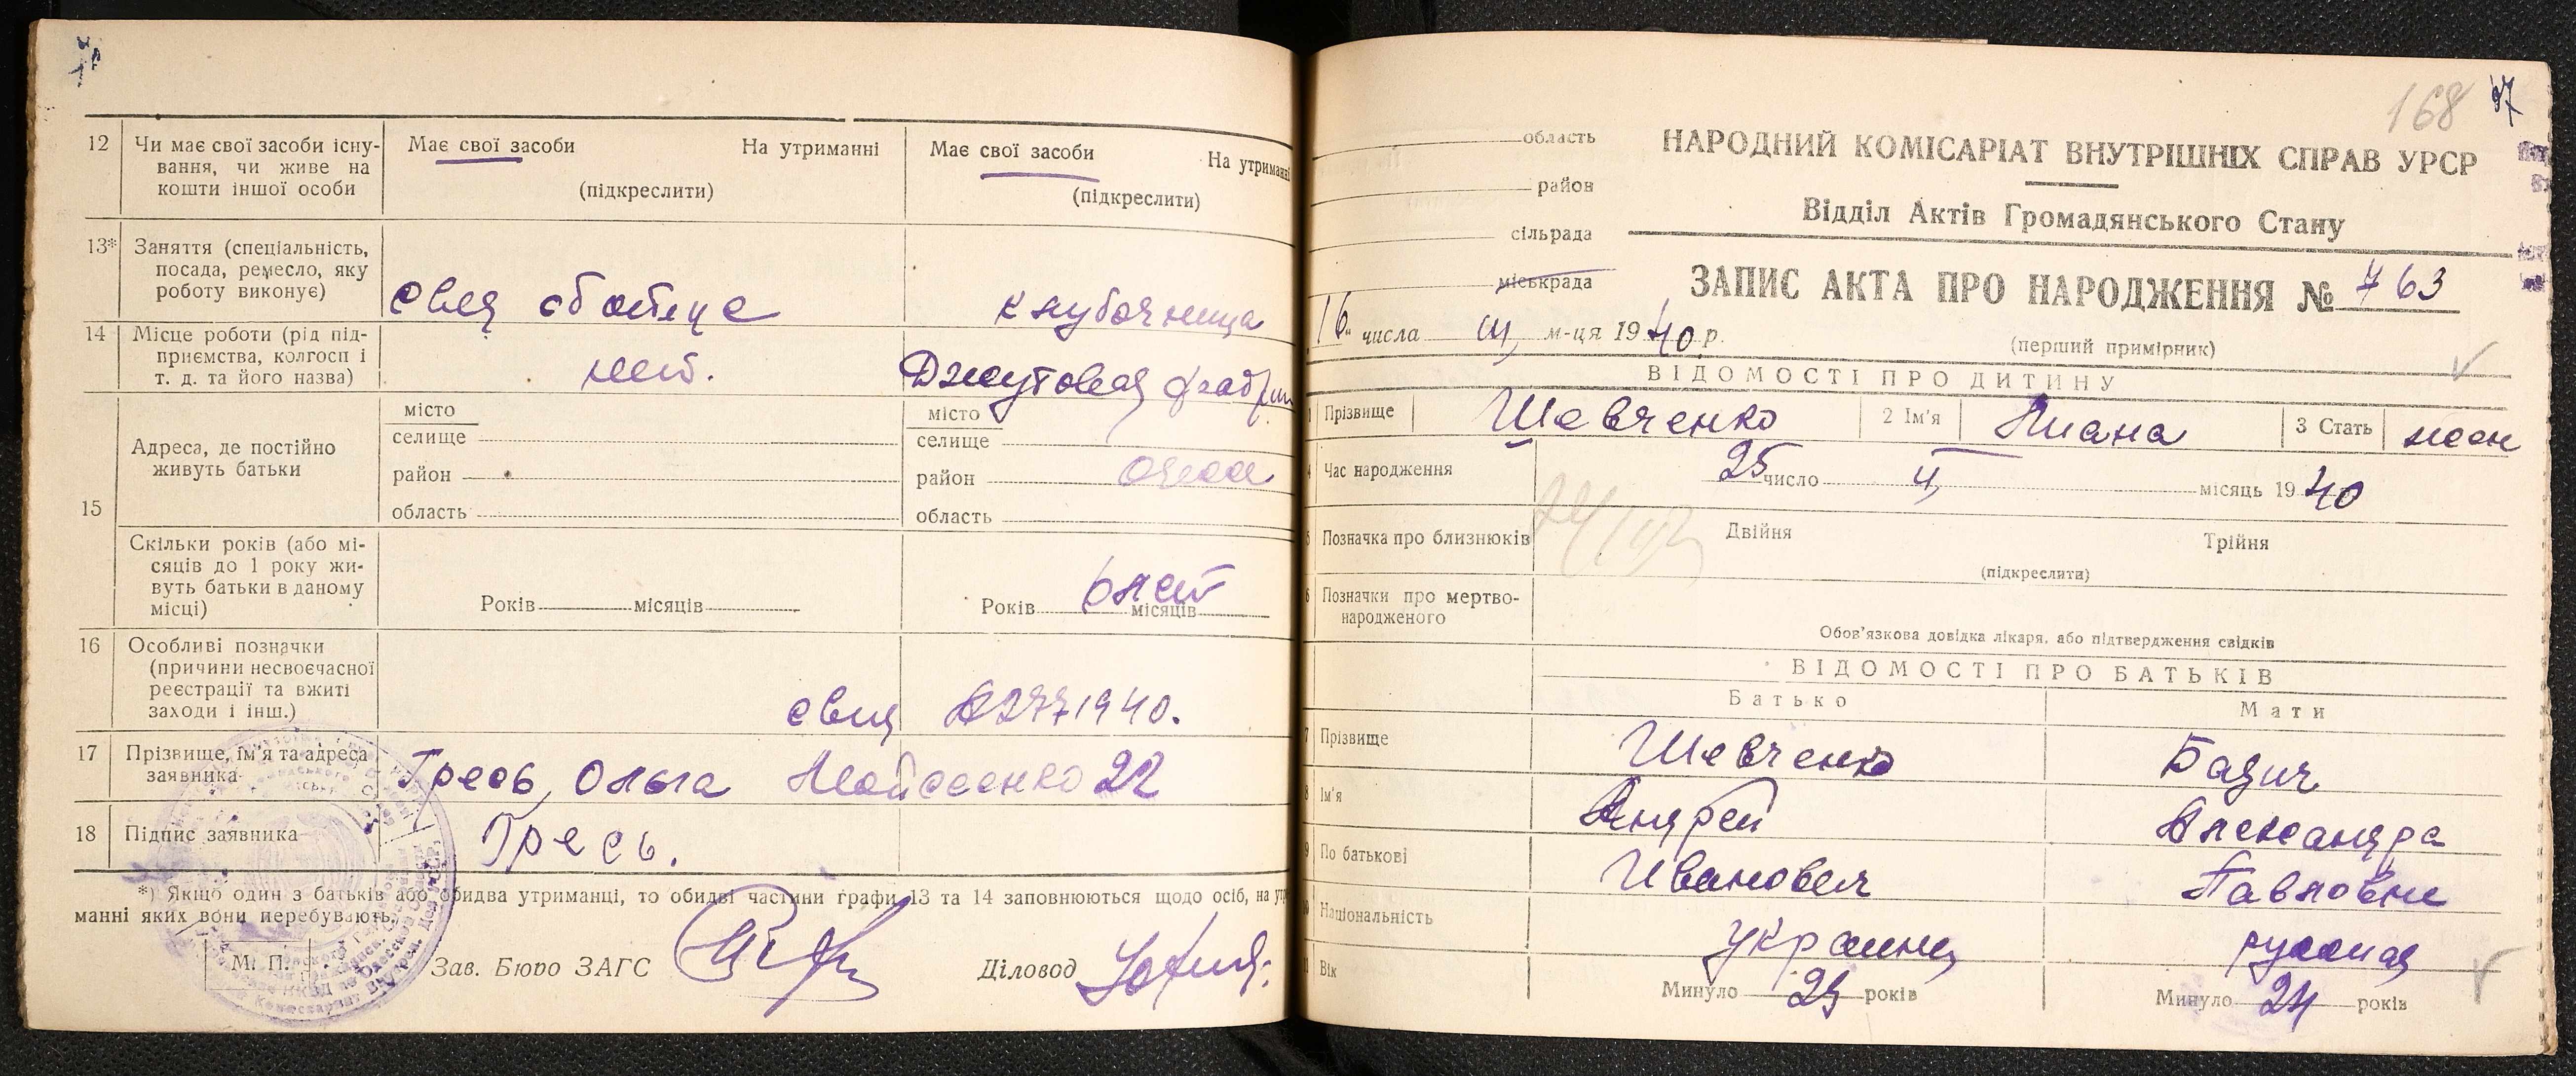 12 Чи має свої засоби існу-
вання, чи живе на
кошти іншої особи
Має свої засоби На утриманні
(підкреслити)
Має свої засоби На утриманні
(підкреслити)
13* Заняття (спеціальність,
посада, ремесло, яку
роботу виконує)
клубочница
14 Місце роботи (рід під-
приємства, колгосп і
т. д. та його назва)
нет.
Джутовая фабри
15 Адреса, де постійно
живуть батьки
місто
селище
район
область
місто
селище
район
область
Скільки років (або мі-
сяців до 1 року жи-
вуть батьки в даному
місці)
Років місяців
Років 6 лет місяців
16 Особливі позначки
(причини несвоєчасної
реєстрації та вжиті
заходи і інш.)
1940.
17 Прізвище, ім'я та адреса
заявника
Гресь, Ольга 22
18 Підпис заявника
Гресь.
*) Якщо один з батьків або обидва утриманці, то обидві частини графи 13 та 14 заповнюються щодо осіб, на утри
манні яких вони перебувають.
М. П.
Зав. Бюро ЗАГС
Діловод
168
область
район
сільрада
міськрада
НАРОДНИЙ КОМІСАРІАТ ВНУТРІШНІХ СПРАВ УРСР
Відділ Актів Громадянського Стану
ЗАПИС АКТА ПРО НАРОДЖЕННЯ № 763
16 числа III м-ця 1940 р.
(перший примірник)
ВІДОМОСТІ ПРО ДИТИНУ
1 Прізвище Шевченко 2 Ім'я Лиана 3 Стать жен
4 Час народження 25 число II місяць 1940
5 Позначка про близнюків Двійня Трійня
(підкреслити)
6 Позначки про мертво-
народженого
Обов'язкова довідка лікаря, або підтвердження свідків
ВІДОМОСТІ ПРО БАТЬКІВ
Батько Мати
7 Прізвище Шевченко
8 Ім'я Андрей Александра
9 По батькові Иванович Павловне
10 Національність украинец русская
11 Вік Минуло років Минуло 24 років